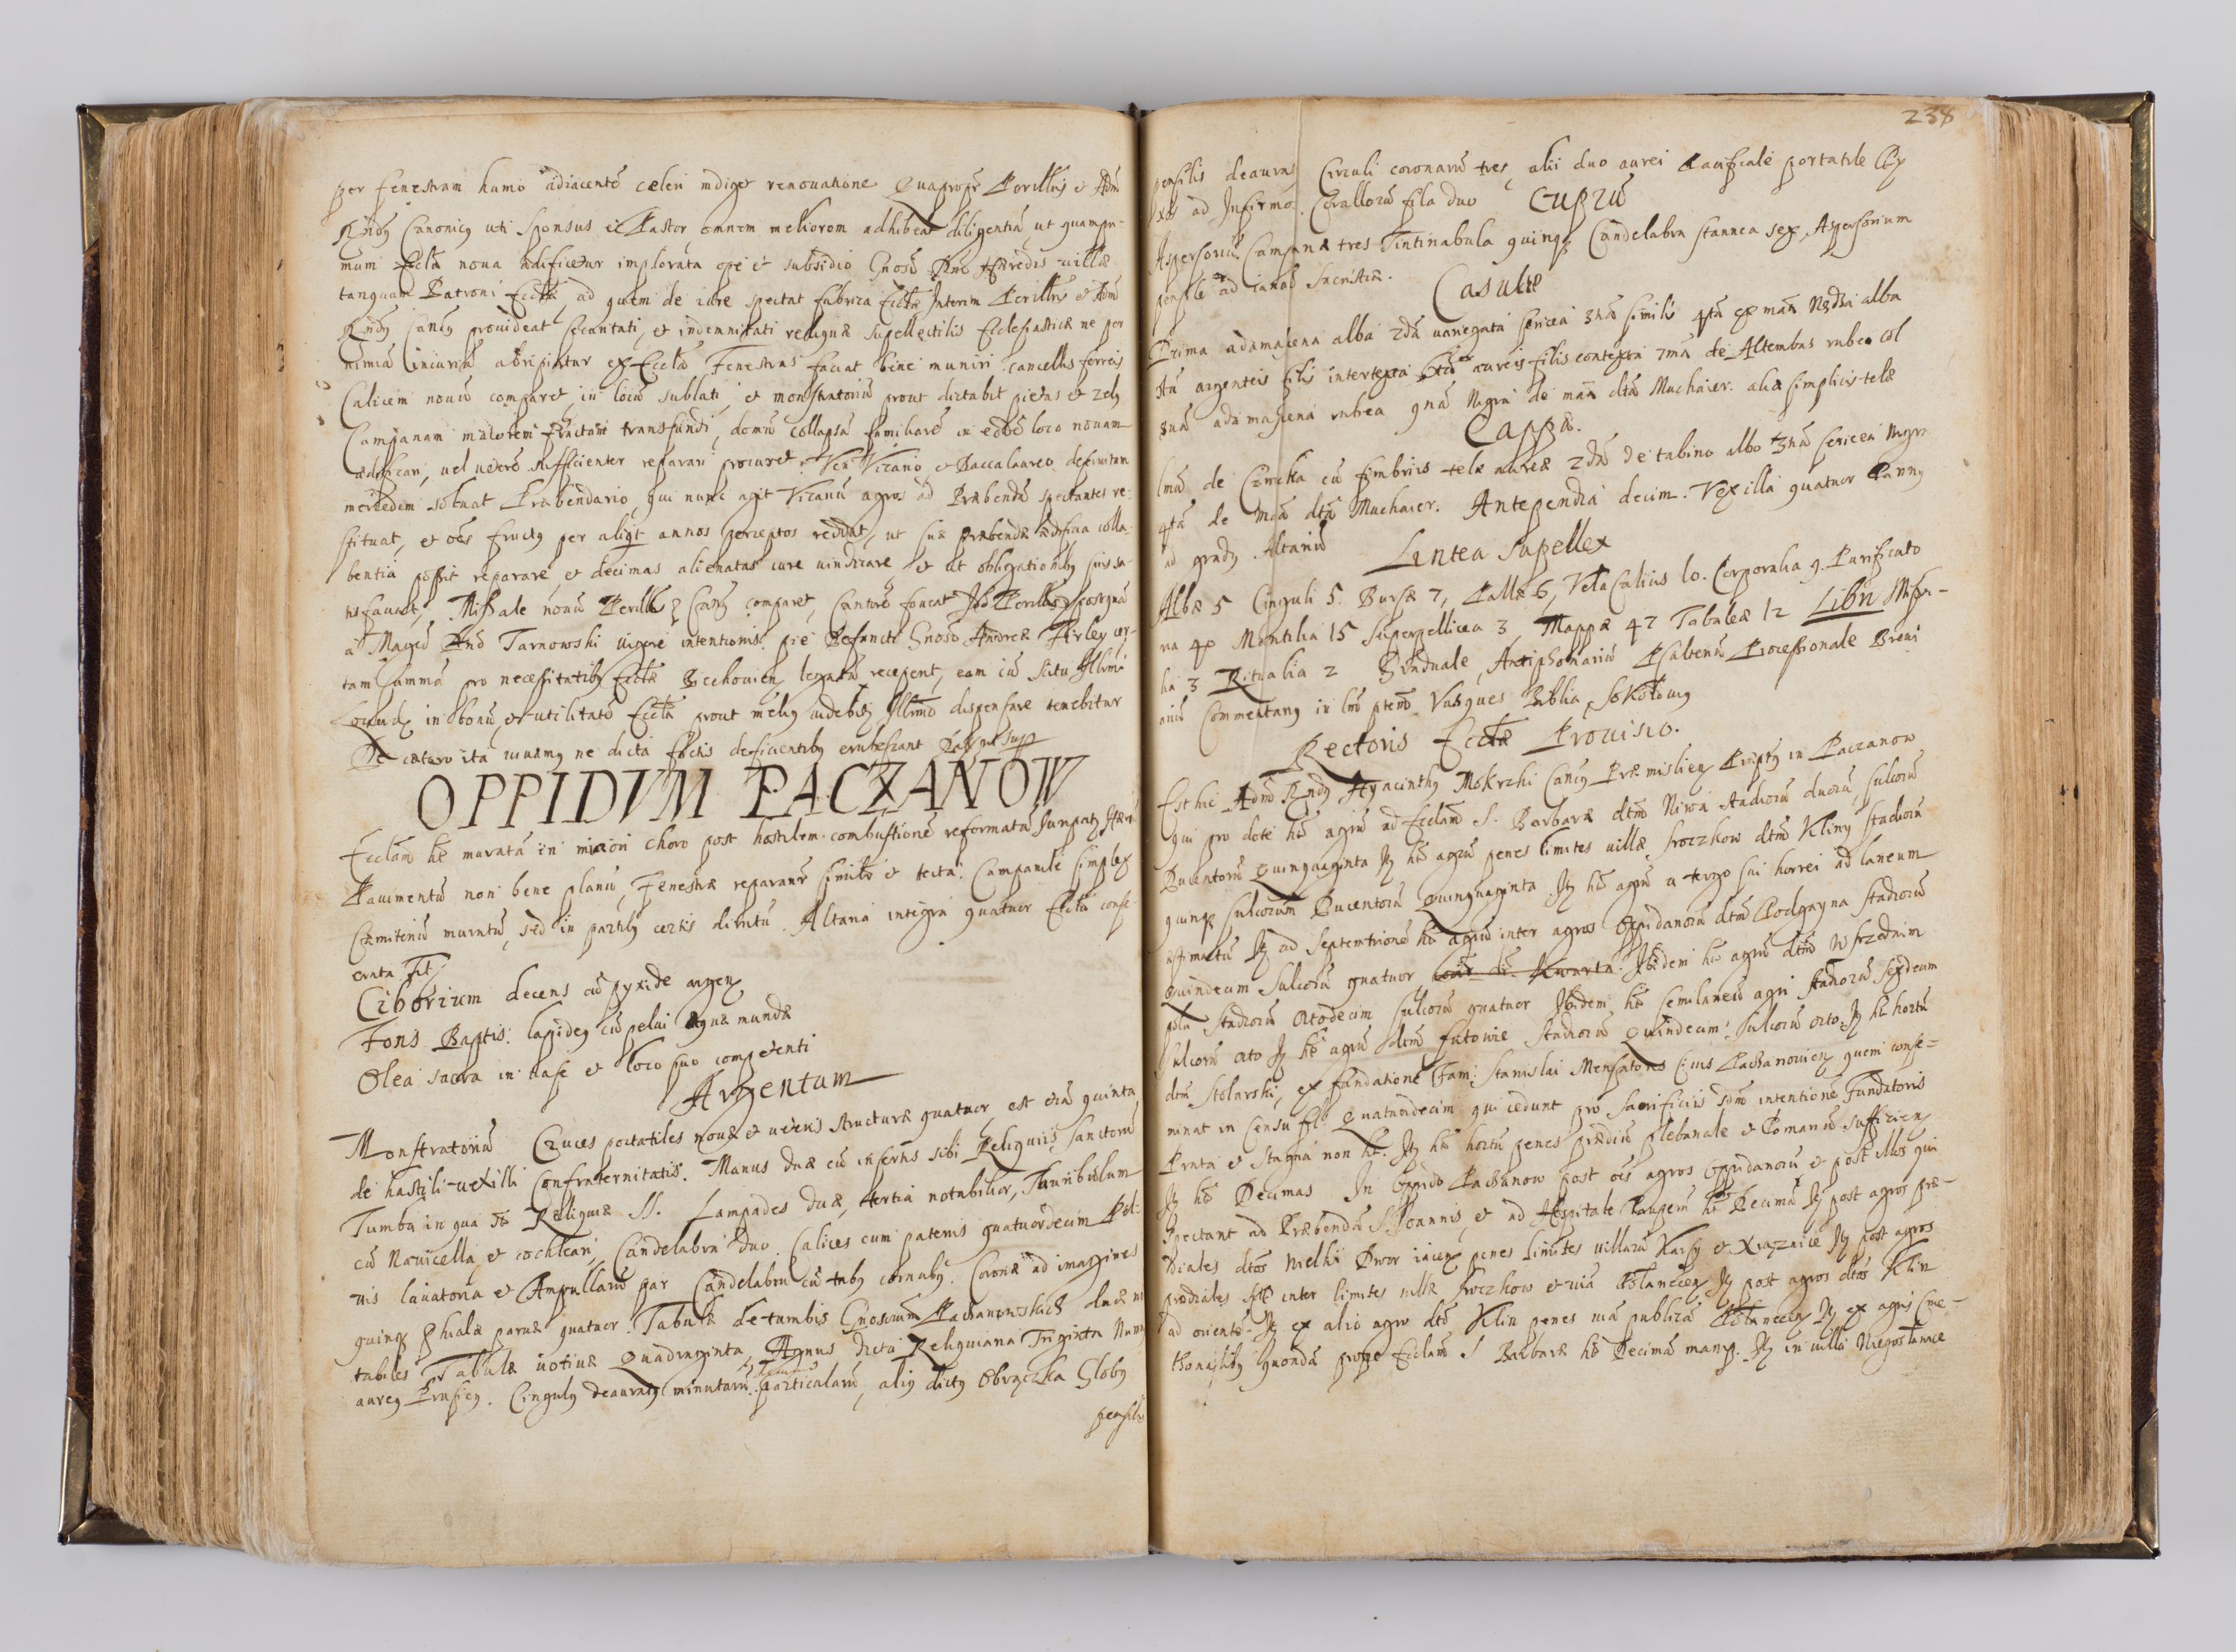 per fenestram humo adiacentē celeri indiget renouatione Quapropr Perillris et Adm
Rndq Canonicq uti Sponsus et Pastor omnem meliorem adhibeat diligentiā ut quampri-
mum Ecclā noua ædificetur implorata ope et subsidio Gnosi Dni Hæredis uillæ
tanquam Patroni Ecclæ, ad quem de iure spectat fabrica Ecclæ Interim Perillris et Adm
Rndq Cancq prouideat securitati, et indemnitati reliquæ supellectilis Ecclesiasticæ ne per
nimiā incuriā abripiatur ex Ecclā Fenestras faciat bene muniri cancellis ferreis
Calicem nouū comparet, in locū sublati, et monstratoriū prout dictabit pietas et zelq
Campanam maiorem fractam transfundi, domū collapsā familiarē in eodē loco nouam
ædificari, uel ueterē sufficienter reparari procuret. Vicario et Baccalaureo definitam
mercedem soluat Præbendario, qui nunc agit Vicariū agros ad Præbendā spectantes re-
stituat, et oēs fructq per aliqt annos perceptos reddat, ut suæ præbendæ ædificia colla-
bentia possit reparare, et decimas alienatas iure uindicare et ut obligationibq suis sa-
tisfaciat, Missale nouū Perillris Cancq comparet, Cantorē foueat Perillris postquā
a Magco Dno Tarnowski uigore intentionis pie Defuncti Gnosi Andreæ Firley cer-
tam summā pro necessitatibq Ecclæ Bechouien legatā receperit, eam cū scitu Illrmi
Loci in bonū, et utilitatē Ecclæ prout meliq uidebitq Illrmo dispensare tenebitur
De cætero ita uiuamq ne dicta factis deficientibq erubescant ut sup
OPPIDVM PACZANOW
Ecclam hē muratā in minori choro post hostilem combustionē reformatā
Pauimentū non bene planū, Fenestræ reparantr similr et tecta. Campanile simplex
Cæmiteriū muratū, sed in partibq certis dirutū. Altaria integra quatuor Eccla conse-
crata sit
Ciborium decens cū pyxide argen
Fons Baptis: lapideq cū pelui aquæ mundæ
Olea sacra in uase et loco suo competenti
Argentum
Monstratoriū Cruces portatiles nouæ et ueteris structuræ quatuor, est etiā quinta
de hastili uexilli Confraternitatis. Manus duæ cū insertis sibi Reliquiis Sanctorū
Tumba in qua st Reliquiæ SS. Lampades duæ, tertia notabilior, Thuribulum
cū Nauicella, et cochleari, Candelabra duo Calices cum patenis quatuordecim Pel-
uis lauatoria et Ampullarū par Candelabra cū tribq cornubq. Coronæ ad imagines
quinq Phialæ paruæ quatuor. Tabulæ de tumbis Gnosorum Paczanowskich duæ no
tabiles Tabulæ uotiuæ Quadraginta, Agnus dicta Reliquiaria Triginta Num
aureq Prusicq. Cingulq deauratq minutarū particularū, aliq dictq Obrączka Globq
pensilis
238
pensilis deaurat Circuli coronarū tres, alii duo aurei Pacificale portatile Py
xis ad Infirmos. Corallorū fila duo
Cuprū
Aspersoriū Campanæ tres Tintinabula quinq Candelabra stannea sex, Aspersorium
pensile ad ianuā Sacristiæ.
Casulæ
Prima adamascena alba 2da uariegata sericea 3tia similis 4ta ex mā alba
argenteis filis intertexta aureis filis contexta 7ma de Altembas rubea
adamascena rubea 9na Nigra de mā dtā Muchaier. aliæ simplicis telæ
Cappæ.
1ma de cū fimbriis telæ aureæ 2da de tabino albo 3tia sericea Nigra
4ta de mā dtā Muchaier. Antependia decim. Vexilla quatuor Pannq
ad gradq Altariū
Lintea Supellex
Albæ 5 Cinguli 5. Bursæ 7, Pallæ 6, Vela Calicis 10. Corporalia 9. Purificato
ria 40 Mantilia 15 Superpellicea 3 Mappæ 47 Tobaleæ 12 Libri Missa-
lia 3 Ritualia 2 Graduale, Antiphonariū Psalteriū Processionale Breui
ariū Commentarq Vasques Biblia, Sokołouiq
Rectoris Ecclæ Prouisio.
Est hic Adm Rndq Hyacinthq Mokrzki Cancq Præmislien Præptq in Paczanow
qui pro dote hēt agrū ad Ecclam S. Barbaræ dtm Niwa stadiorū duorū, sulcorū
Ducentorū Quinquaginta It hēt agrū penes limites uillæ Sroczkow dtm Kliny stadiorū
quinq sulcorum Ducentorū Quinquaginta. It hēt agrū a tergo sui horrei ad laneum
It ad Septemtrionē hēt agrū inter agros Oppidanorū dtm Podgayna stadiorū
Quindecim Sulcorū quatuor Kwarta. Ibidem hēt agrū dtm W srzednim
polu Stadiorū Octodecim Sulcorū quatuor Ibidem hēt Semilaneū agri stadiorū sexdecim
Sulcorū octo It hēt agrū dtm stadiorū Quindecim, sulcorū octo. It hēt hortū
dtm Stolarski, ex fundatione Fam: Stanislai Mensatoris Ciuis Paczanouien quem conse-
minat in Censu fl. Quatuordecim qui cedunt pro Sacrificiis scdm intentione Fundatoris
Prata et Stagna non hēt. It hēt hortū penes prædiū plebanale et Pomariū sufficien
It hēt Decimas In Oppido Paczanow post oēs agros Oppidanorū et post illos qui
spectant ad Præbendā S. Ioannis, et ad Hospitale Pauperū hēt Decimā It post agros præ-
diales dtos Wielki Dwor iacen penes limites uillarū Karsy et Xiąznice It post agros
prædiales sitos inter limites uillæ Sroczkow et uiā Połanecen It post agros dtos Klin
ad orientē. It ex alio agro dto Klin penes uiā publicā Połanecen It ex agris Cme-
thonalibq quondā prope Ecclam S. Barbaræ hēt Decimā manip. It in uilla Niegosławice